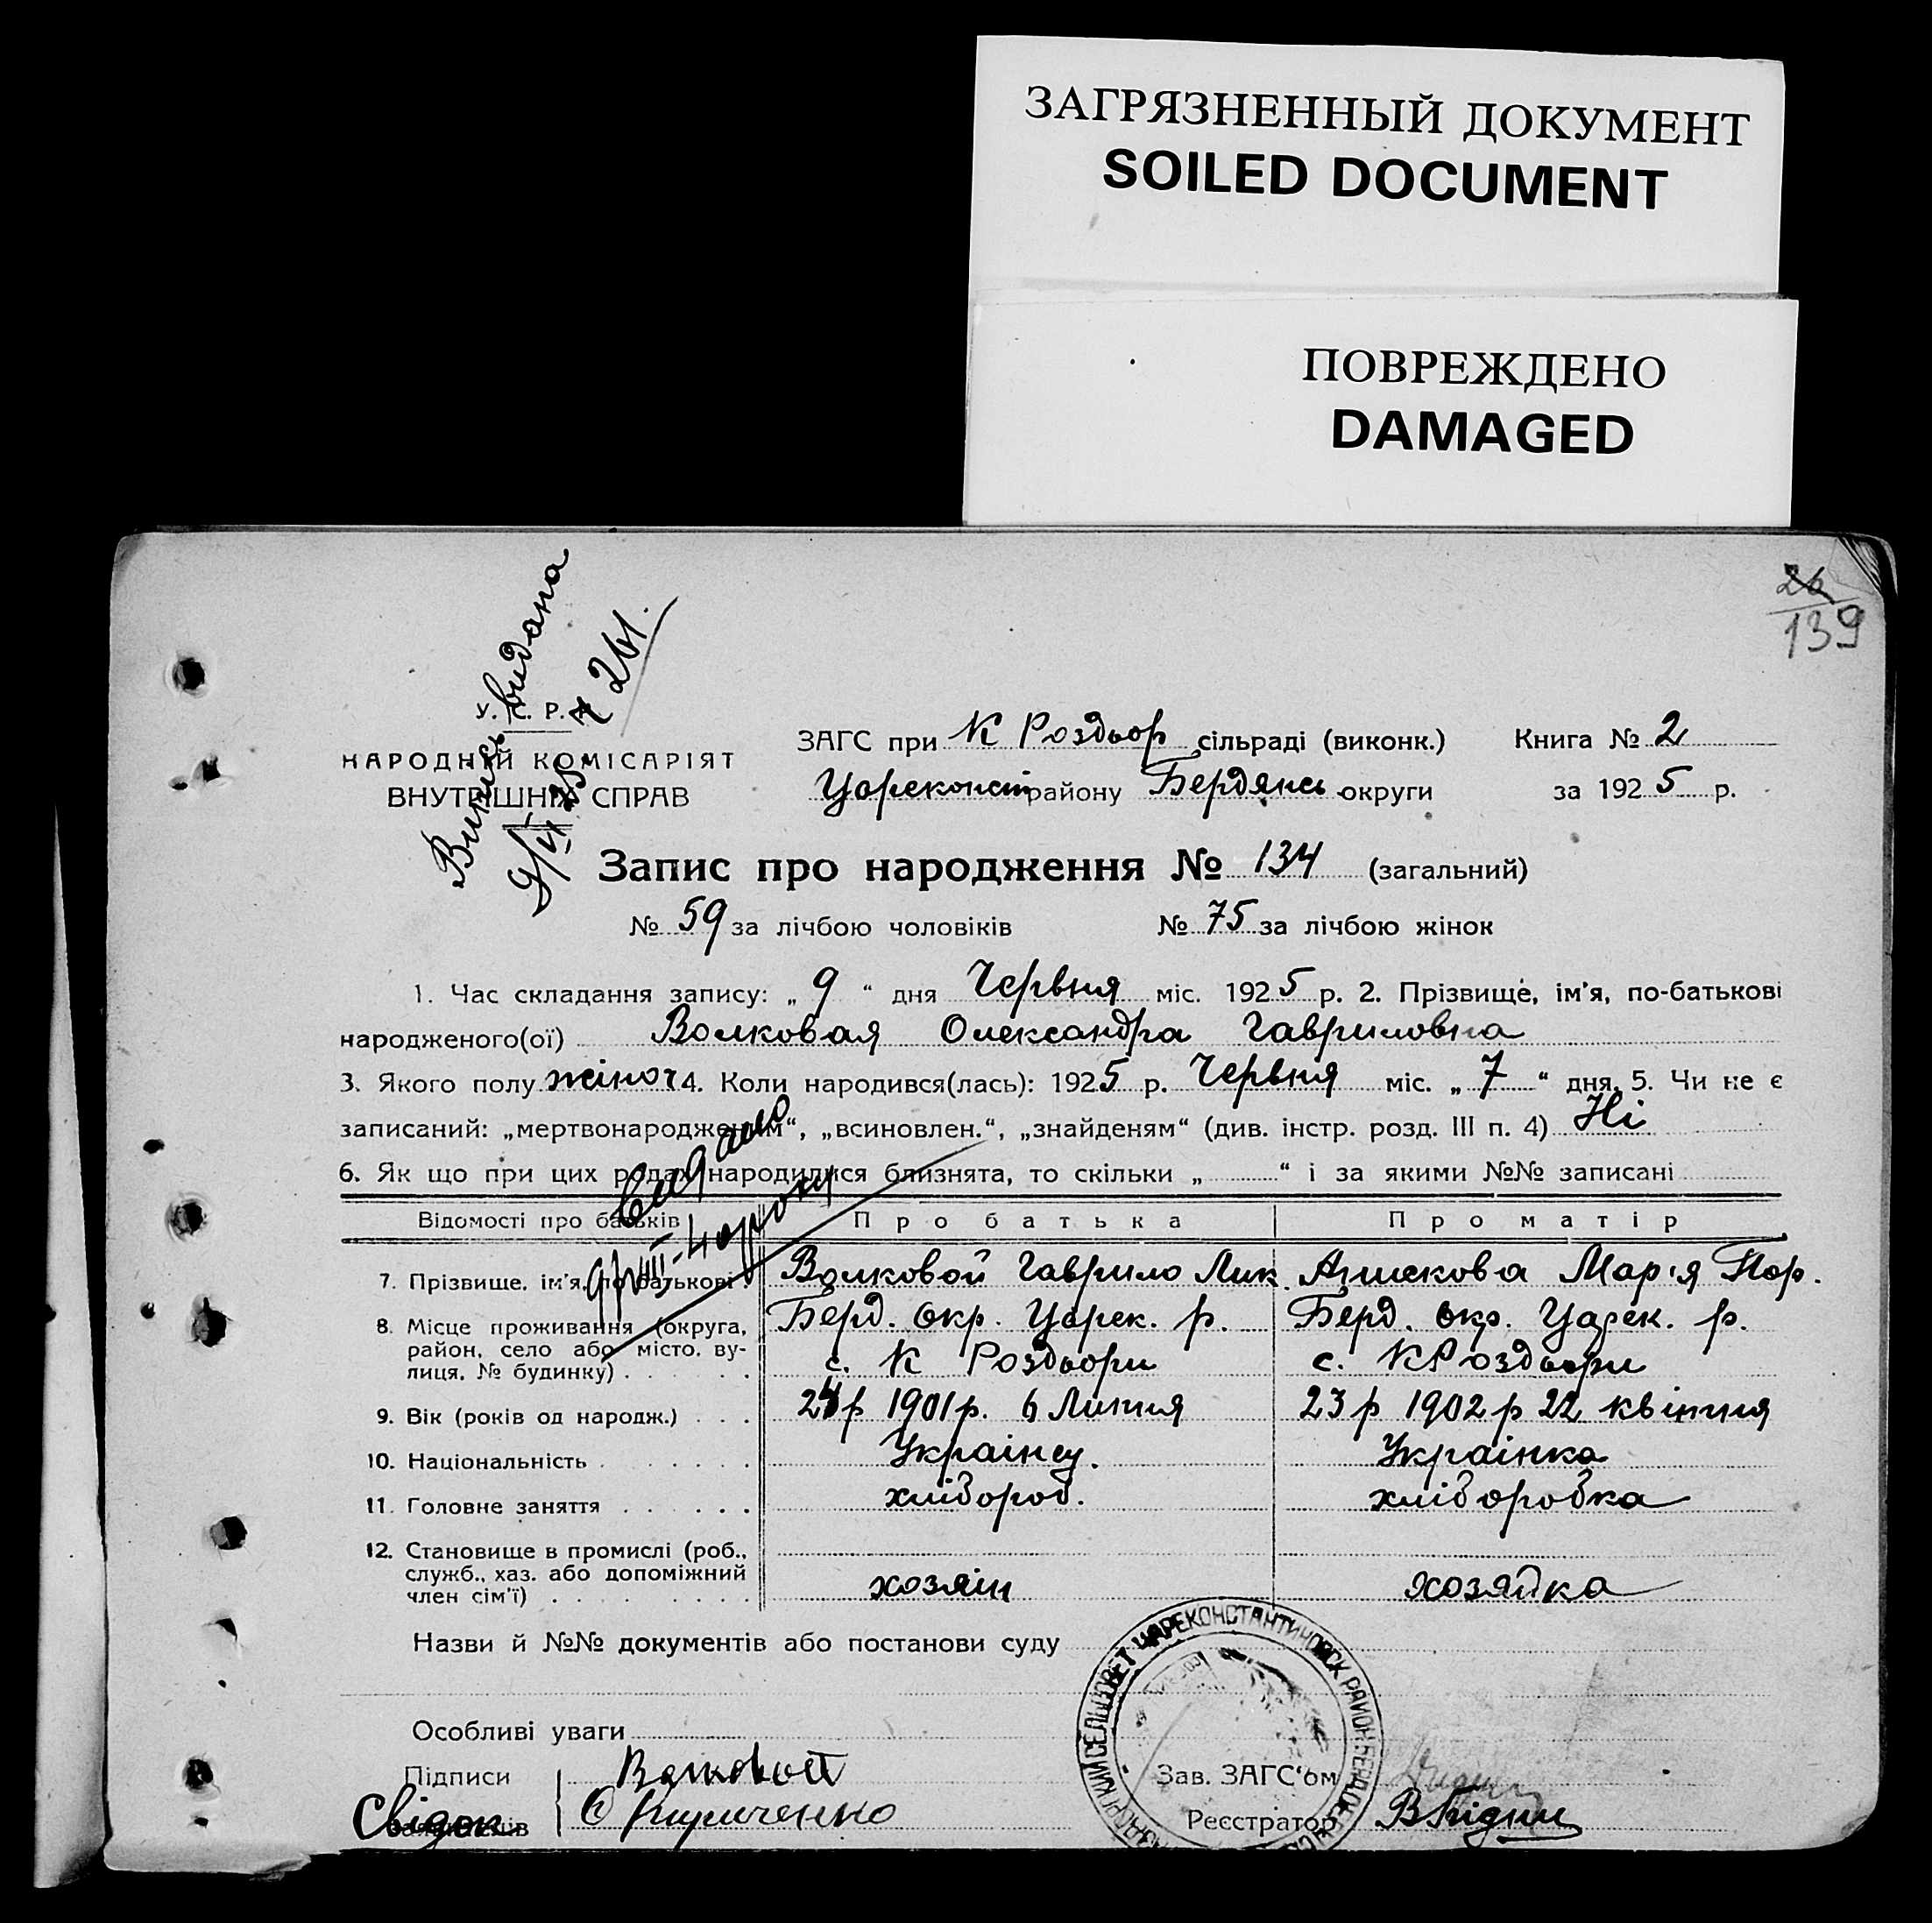 ЗАГРЯЗНЕННЫЙ ДОКУМЕНТ
SOILED DOCUMENT
ПОВРЕЖДЕНО
DAMAGED
26
139
Випись видана
У. С. Р. Р.
НАРОДНІЙ КОМІСАРІЯТ
ВНУТРІШНІХ СПРАВ
ЗАГС при К Роздьор сільраді (виконк.) Книга № 2
Цареконст району Бердянсь округи за 1925 р.
Запис про народження № 134 (загальний)
№ 59 за лічбою чоловіків № 75 за лічбою жінок
1. Час складання запису: „ 9 “ дня Червня міс. 1925 р. 2. Прізвище, ім'я, по-батькові
народженого(ої) Волковая Олександра Гавриловна
3. Якого полу жіноч 4. Коли народився(лась): 1925 р. Червня міс. „ 7 “ дня. 5. Чи не є
записаний: „мертвонародженим“, „всиновлен.“, „знайденям“ (див. інстр. розд. III п. 4) Ні
6. Як що при цих родах народилися близнята, то скільки „ “ і за якими №№ записані
Видано
Відомості про батьків Про батька Про матір
7. Прізвище, ім'я, по-батькові Волковой Гаврило Лик. Марія
8. Місце проживання (округа, район, село або місто, ву-лиця, № будинку) Берд. окр. Царек. р. Берд. окр. Царек. р.
с. К Роздьори с. К Роздьори
9. Вік (років од народж.) 24 р 1901 р. 6 Липня 23 р 1902 р 22 квітня
10. Національність Українец. Українка
11. Головне заняття хлібороб. хліборобка
12. Становище в промислі (роб., служб., хаз. або допоміжний член сім'ї) хозяїн хозяйка
Назви й №№ документів або постанови суду
Особливі уваги
Підписи Волковой
Свідок Кириченко
Зав. ЗАГС'ом
Реєстратор
СЕЛЬСОВЕТ ЦАРЕКОНСТАНТИНОВСК РАЙОН